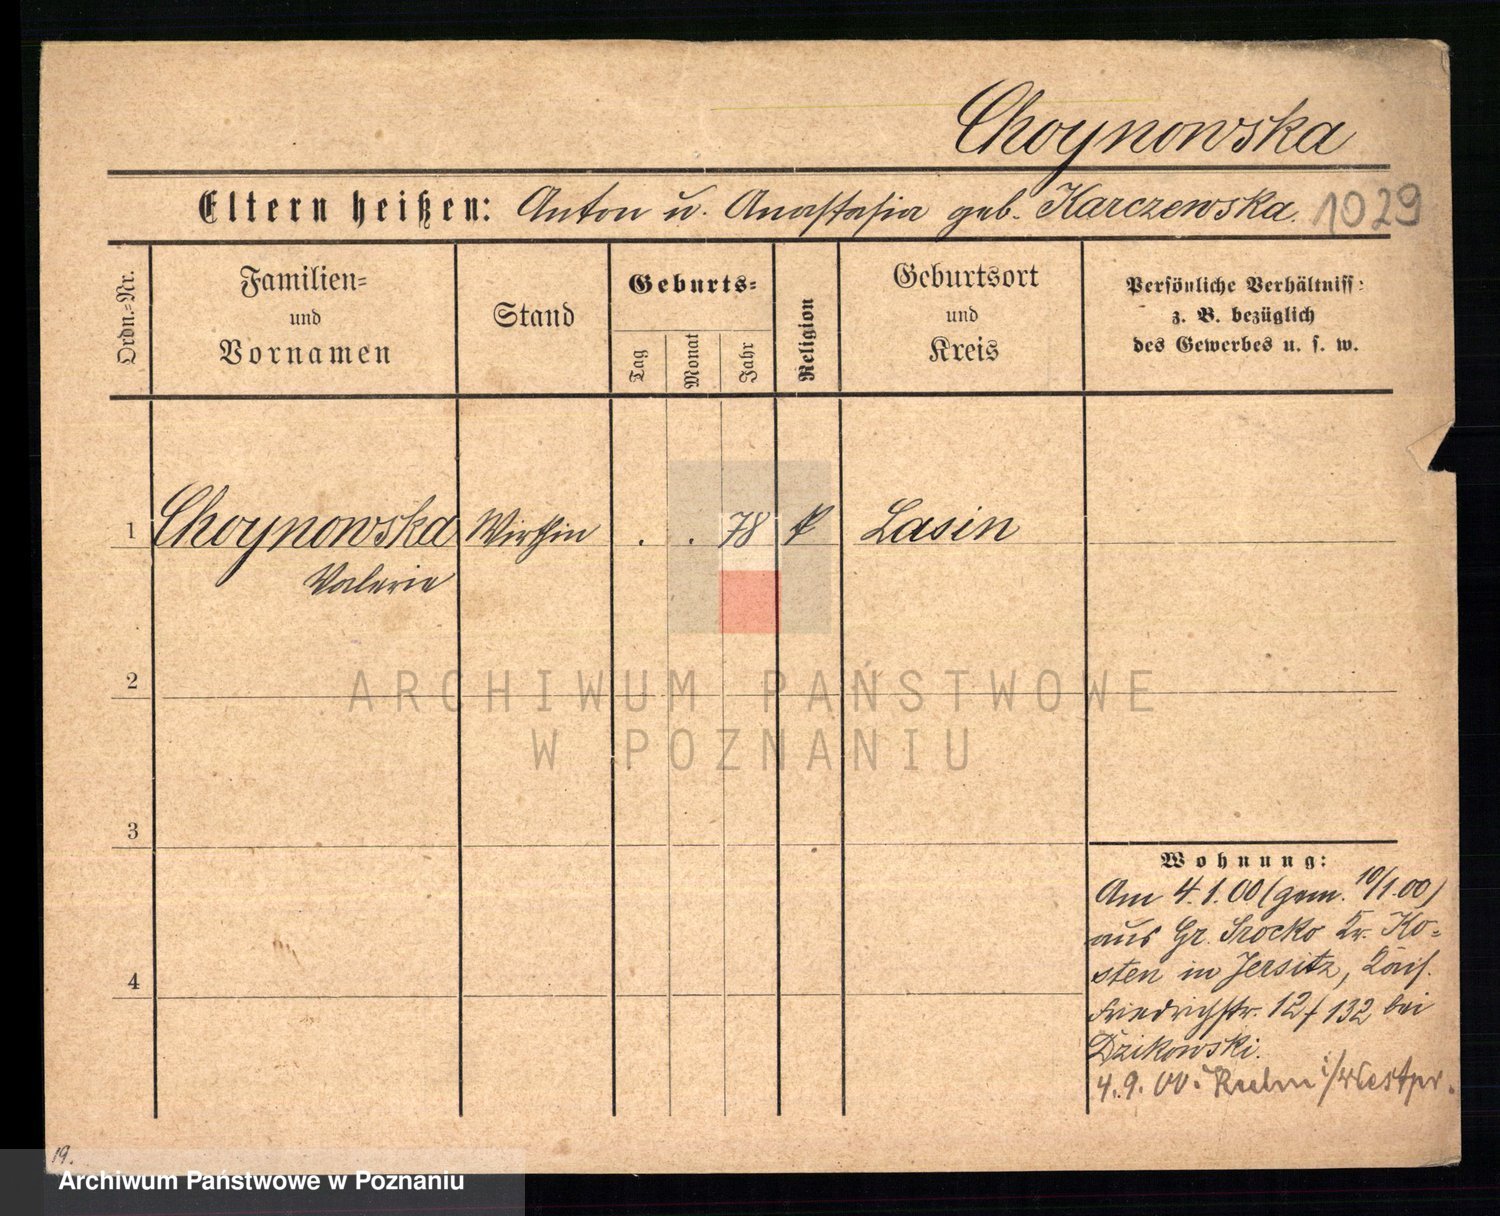 Choynowska
Eltern heißen: Anton u. Anastasia geb. Karczewska. 1029
Ordn.=Nr.
Familien=
und
Vornamen
Stand
Geburts=
Tag
Monat
Jahr
Religion
Geburtsort
und
Kreis
Persönliche Verhältniss:
z. B. bezüglich
des Gewerbes u. s. w.
1 Choynowska Wirthin . . 78 k Lasin
Valerie
2
3
4
Wohnung:
Am 4.1.00 (gem. 10/1.00)
aus Gr. Srocko Kr. Ko=
sten in Jersitz,
Friedrichstr. 12/132 bei
Dzikowski.
4.9.00. Kulm i/Westpr.
19.
ARCHIWUM PAŃSTWOWE
W POZNANIU
Archiwum Państwowe w Poznaniu